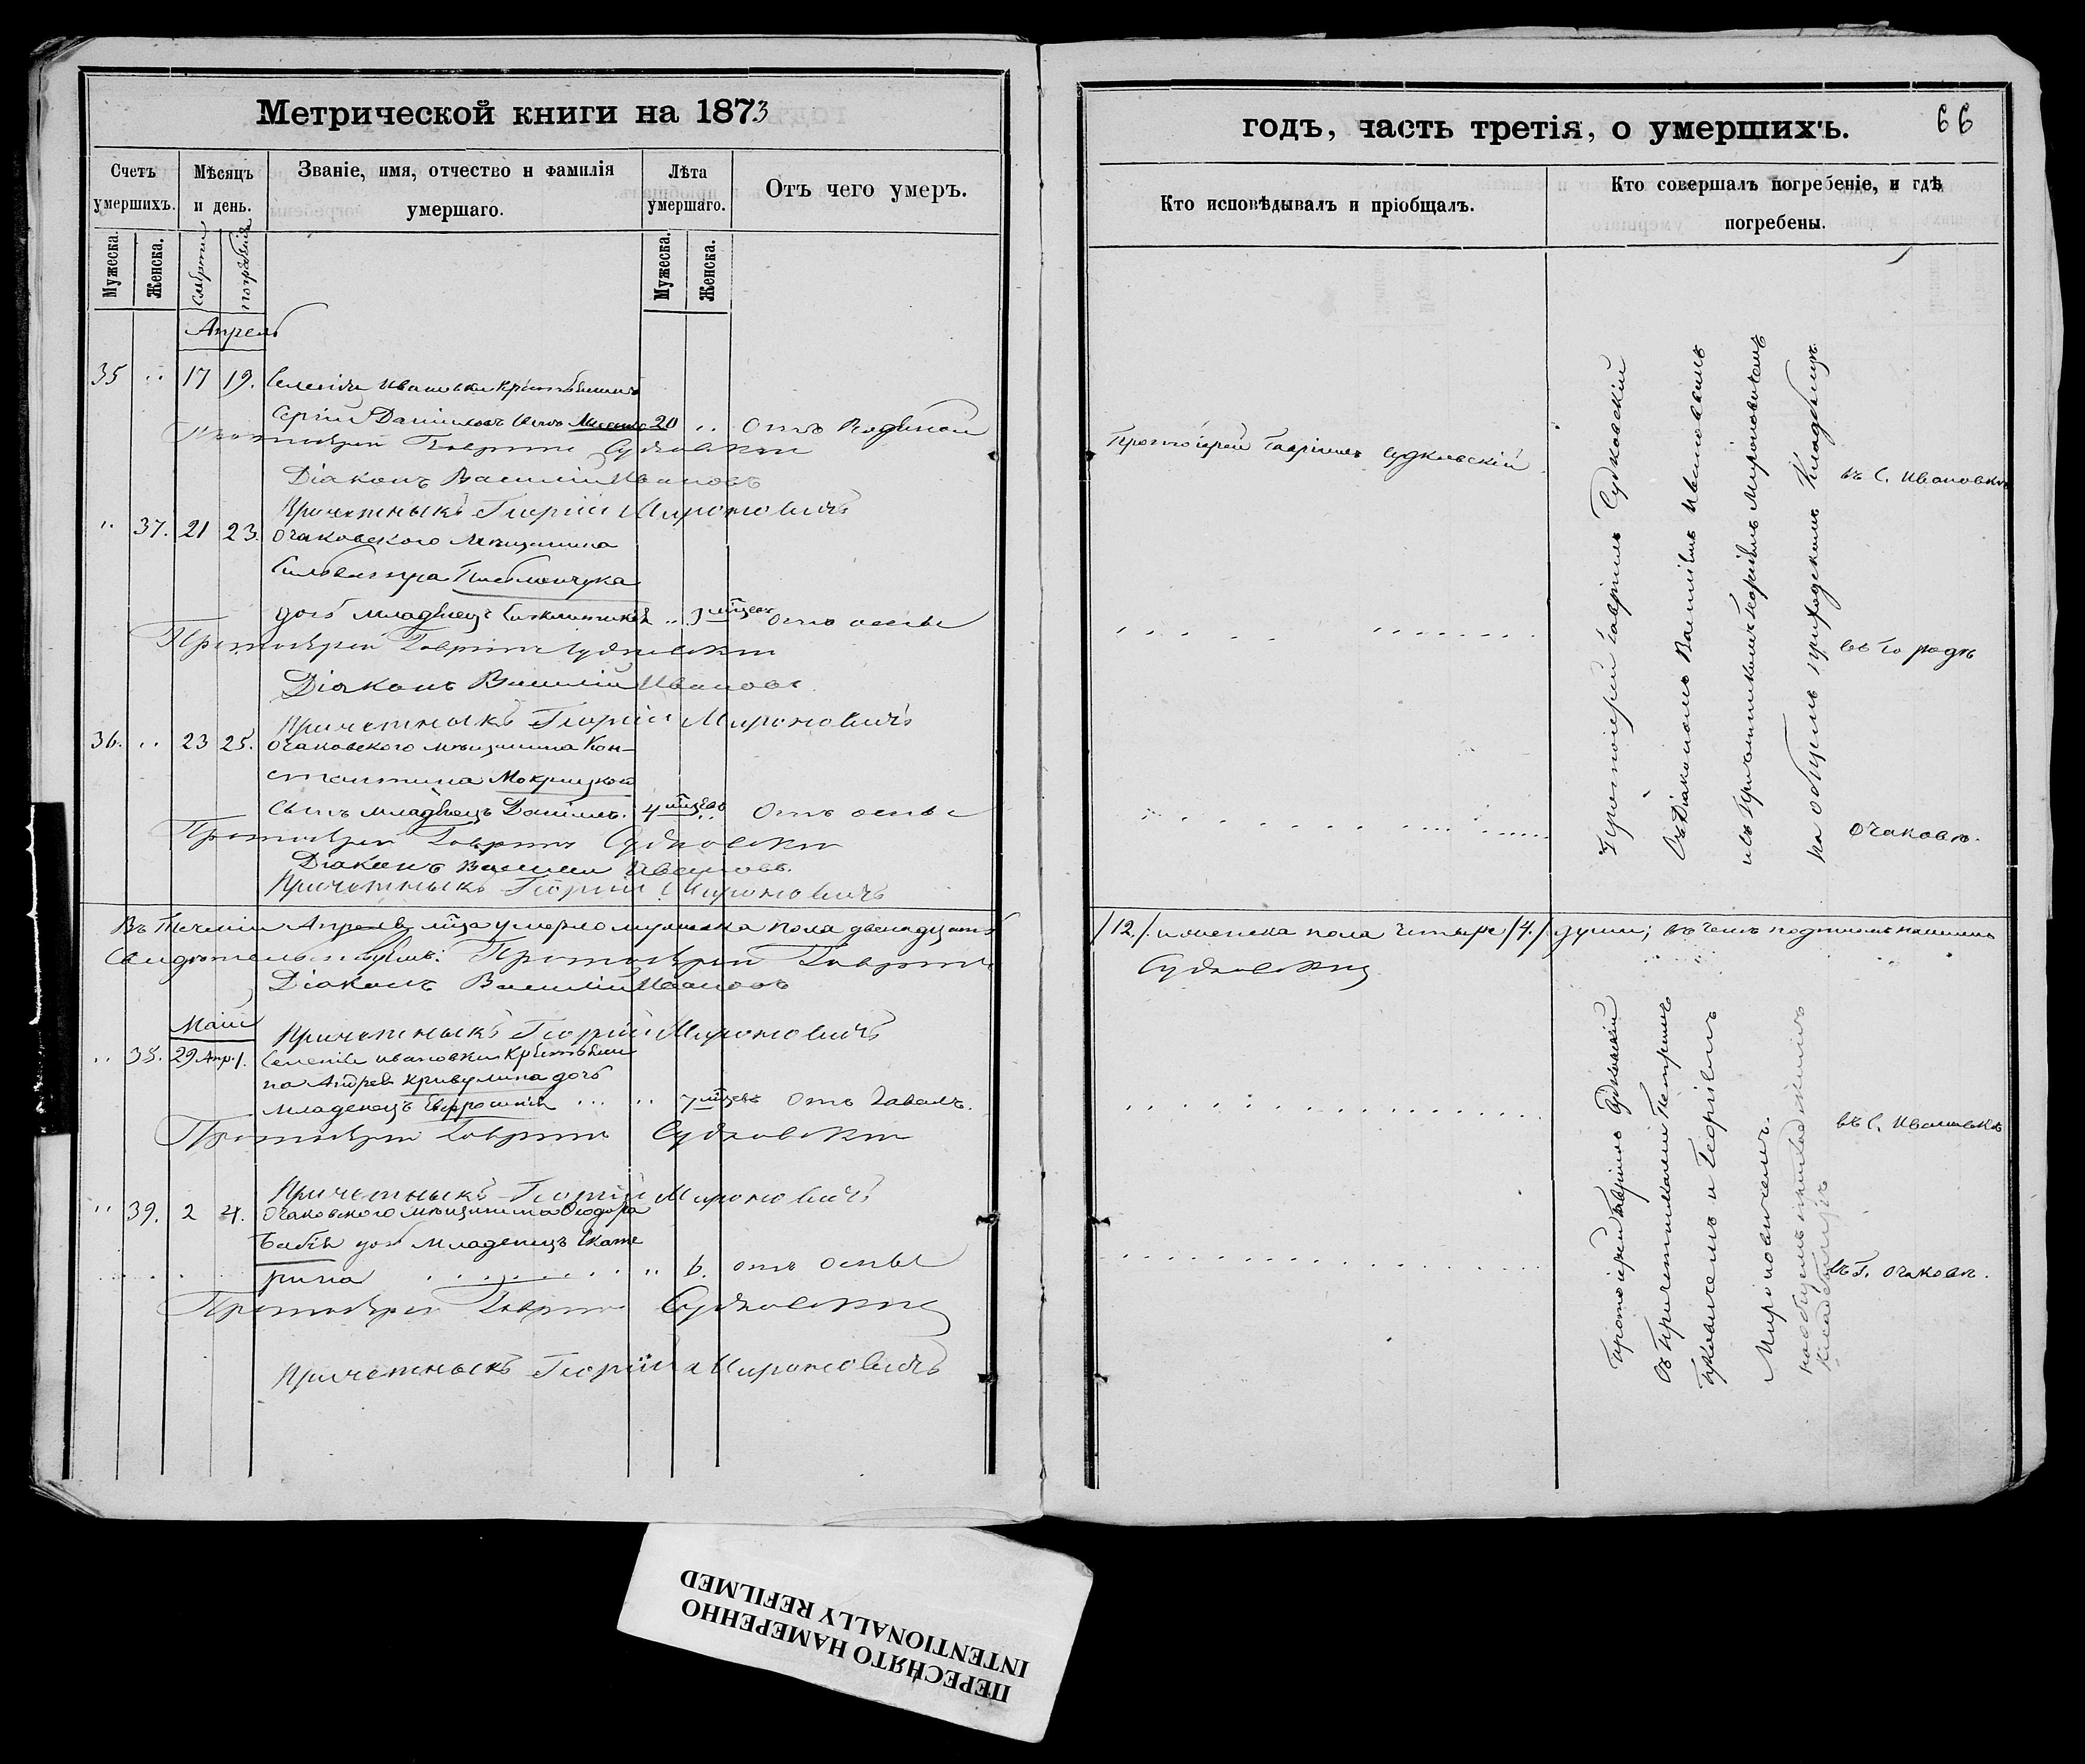 Метрической книги на 1873
Счетъ умершихъ.
Мѣсяцъ и день.
Званіе, имя, отчество и фамилія умершаго.
Лѣта умершаго.
Отъ чего умеръ.
Мужеска.
Женска.
смерти
погребенія
Мужеска.
Женска.
Апрель
35 " 17 19. Селенія Ивановки
Сергій 20 " Отъ
Протоіерей Гавріилъ Судковскій
Діаконъ Василій Ивановъ
Причетныкъ Георгій Мироновичъ
" 37. 21 23. Очаковского мещанина
дочь младенецъ " Отъ оспы
Протоіерей Гавріилъ Судковскій
Діаконъ Василій Ивановъ
Причетныкъ Георгій Мироновичъ
36. " 23 25. Очаковского мещанина Кон-
стантина Мокрицкого
сынъ младенецъ Даніилъ. 4 Отъ оспы
Протоіерей Гавріилъ Судковскій
Діаконъ Василій Ивановъ.
Причетныкъ Георгій Мироновичъ
Въ течении Апреля м͠ца умерло мужеска пола двенадцать
свидетельствуемъ: Протоіерей Гавріилъ
Діаконъ Василій Ивановъ
Причетныкъ Георгій Мироновичъ
Май
" 38. 29 Апр. 1. Селенія Ивановки
на Андрея дочь
младенецъ " 7
Протоіерей Гавріилъ Судковскій
Причетныкъ Георгій Мироновичъ
" 39. 2 4. Очаковского мещанина Ѳеодора
дочь младенецъ Екате
рина " 6. отъ оспы
Протоіерей Гавріилъ Судковскій
Причетныкъ Георгій Мироновичъ
годъ, часть третія, о умершихъ.
66
Кто исповѣдывалъ и пріобщалъ.
Кто совершалъ погребеніе, и гдѣ погребены.
Протоіерей Гавріилъ Судковскій
Протоіерей Гавріилъ Судковскій
съ Діакономъ Василіемъ Ивановымъ
Мироновичемъ
на общемъ приходскомъ кладбищѣ
въ С. Ивановкѣ
въ городѣ
Очаковѣ.
/12/. и женска пола четыре /4/ души; въ чемъ подписомъ нашимъ
Судковскій
Протоіерей Гавріилъ Судковскій
и Георгіемъ
Мироновичемъ.
на общемъ приходскимъ
кладбищѣ
въ С. Ивановкѣ
въ г. Очаковѣ.
ПЕРЕСНЯТО НАМЕРЕННО
INTENTIONALLY REFILMED